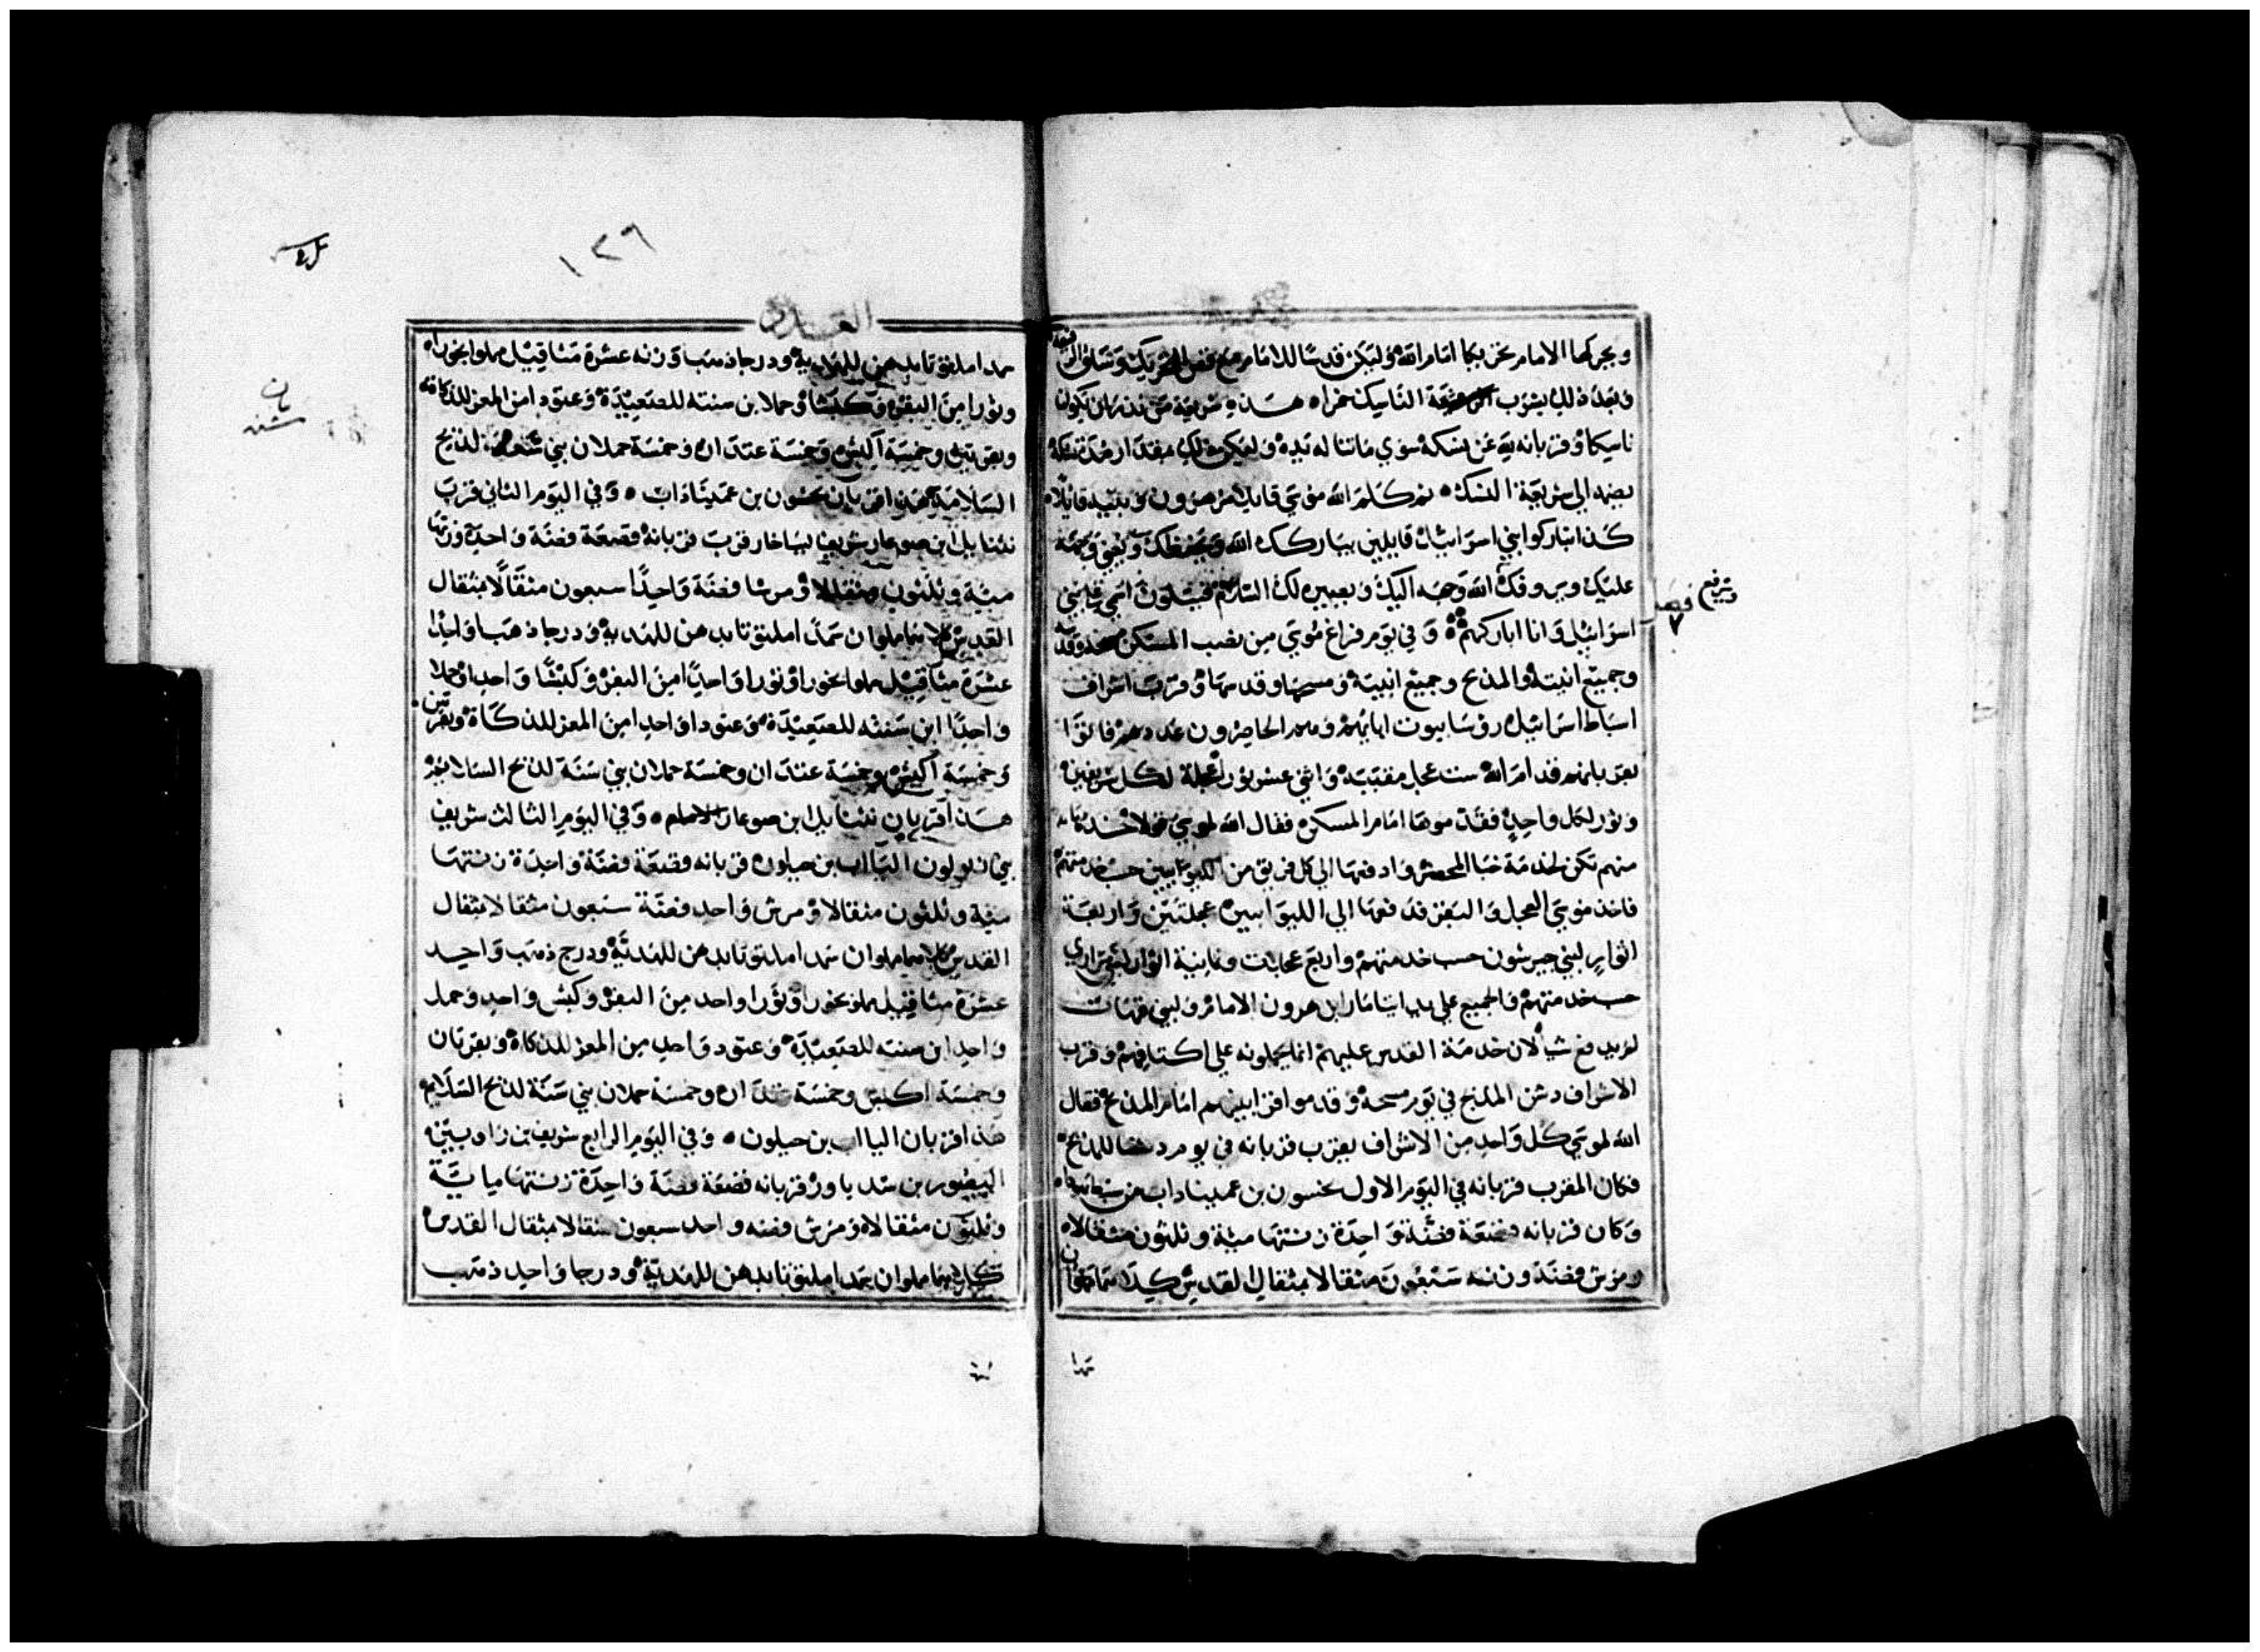 ويحركها الامام تحريكا امام الله وليكن قدسا للامام مع قص التحريك وساق الرفيعة
وبعد ذلك يشرب الناسك خمرا هذه شريعة من نذر ان يكون
ناسكا وقربانه لله عن نسكه سوي ما تنا له يده وليكن مقدار نذره
يضم الي شريعة النسك ثم كلم الله موسي قايلا مر هرون وبنيه قائلا
كذا تباركوا بني اسرائيل قايلين يباركك الله ويحفظك
عليك ويروفك الله وجهه اليك ويصير لك السلام فيتلون اسمي علي بني
اسرائيل وانا اباركهم وفي يوم فراغ موسي من نصب المسكن مسحه وقدسه
وجميع انيته والمذبح وجميع انيته ومسحها وقدسها وقرب اشراف
اسباط اسرائيل رؤسا بيوت ابايهم وهم الحاضرون عددهم فاتوا
بقربانهم قدام الله ست عجل مقببة واثني عشر ثورا عجلة لكل شريفين
وثور لكل واحد فقدموها امام المسكن فقال الله لموسي خذها
منهم تكن لخدمة خبا المحضر وادفعها الي كل فريق من الليوانيين حسب خدمتهم
فاخذ موسي العجل والبقر فدفعها الي الليوانيين عجلتين واربعة
اثوار لبني جيرشون حسب خدمتهم واربع عجلات وثمانية اثوار لبني مراري
حسب خدمتهم والجميع علي يد ايثامار ابن هرون الامام ولبني قهات
لم يدفع شيا لان خدمة القدس عليهم انما يحملونه علي اكتافهم وقرب
الاشراف دشن المذبح في يوم مسحه وقدموا قرابينهم امام المذبح فقال
الله لموسي كل واحد من الاشراف يقرب قربانه في يوم دشنا للمذبح
فكان المقرب قربانه في اليوم الاول نحسون بن عميناداب من سبط يهوذا
وكان قربانه قصعة فضة واحدة زنتها مية وثلثون مثقالا
ومرش فضة وزنه سبعون مثقالا بمثقال القدس كلاهما مملوان
تمدا
وترفع
فصل
٧
١٢٦
العدد
سمدا ملتوتا بدهن للهدية ودرجا ذهب وزنه عشرة مثاقيل مملوا بخورا
وثورا من البقر وكبشا وحملا ابن سنته للصعيدة وعتودا من المعز للذكاة
وبقرتين وخمسة اكبش وخمسة عتدان وخمسة حملان بني سنة لذبح
السلامة هذا قربان نحسون بن عميناداب وفي اليوم الثاني قرب
نثنايل ابن صوعار شريف ايساخار قرب قربانه قصعة فضة واحدة وزنها
مية وثلثون مثقالا ومرشا فضة واحدا سبعون مثقالا بمثقال
القدس كلاهما مملوان سمدا ملتوتا بدهن للهدية ودرجا ذهبا واحدا
عشرة مثاقيل مملوا بخورا وثورا واحدا من البقر وكبشا واحدا وحملا
واحدا ابن سنته للصعيدة وعتودا واحدا من المعز للذكاة وبقرتين
وخمسة اكبش وخمسة عتدان وخمسة حملان بني سنة لذبح السلامة
هذا قربان نثنايل ابن صوعار الامام وفي اليوم الثالث شريف
بني زبولون الياب بن حيلون قربانه قصعة فضة واحدة زنتها
مية وثلثون مثقالا ومرش واحد فضة سبعون مثقالا بمثقال
القدس كلاهما مملوان سمدا ملتوتا بدهن للهدية ودرج ذهب واحد
عشرة مثاقيل مملو بخورا وثورا واحد من البقر وكبش واحد وحمل
واحد ابن سنته للصعيدة وعتود واحد من المعز للذكاة وبقرتان
وخمسة اكبش وخمسة عتدان وخمسة حملان بني سنة لذبح السلامة
هذا قربان الياب بن حيلون وفي اليوم الرابع شريف بن راوبين
اليصور بن شدياور قربانه قصعة فضة واحدة زنتها ماية
وثلثون مثقالا ومرش فضة واحد سبعون مثقالا بمثقال القدس
كلاهما مملوان سمدا ملتوتا بدهن للهدية ودرجا واحد ذهب